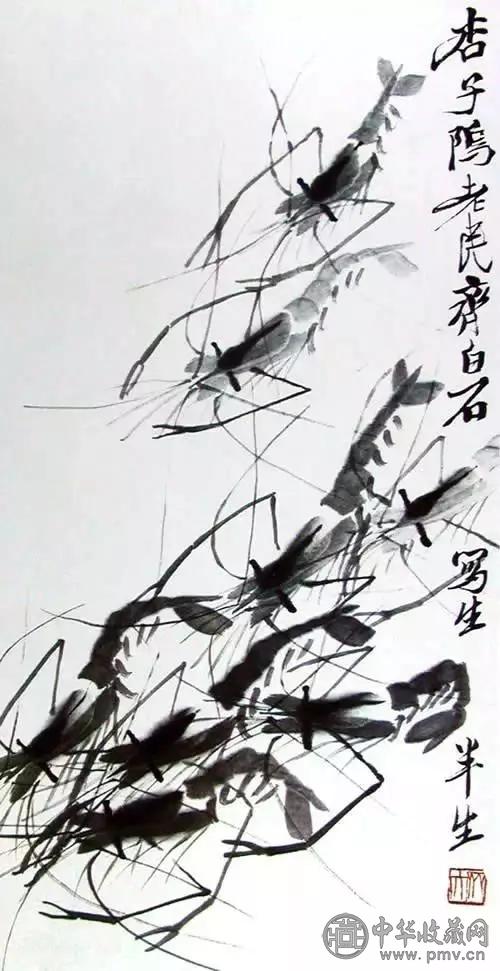 杏子隖老民齊白石
寫生
半生
中华收藏网
www.pmv.cn